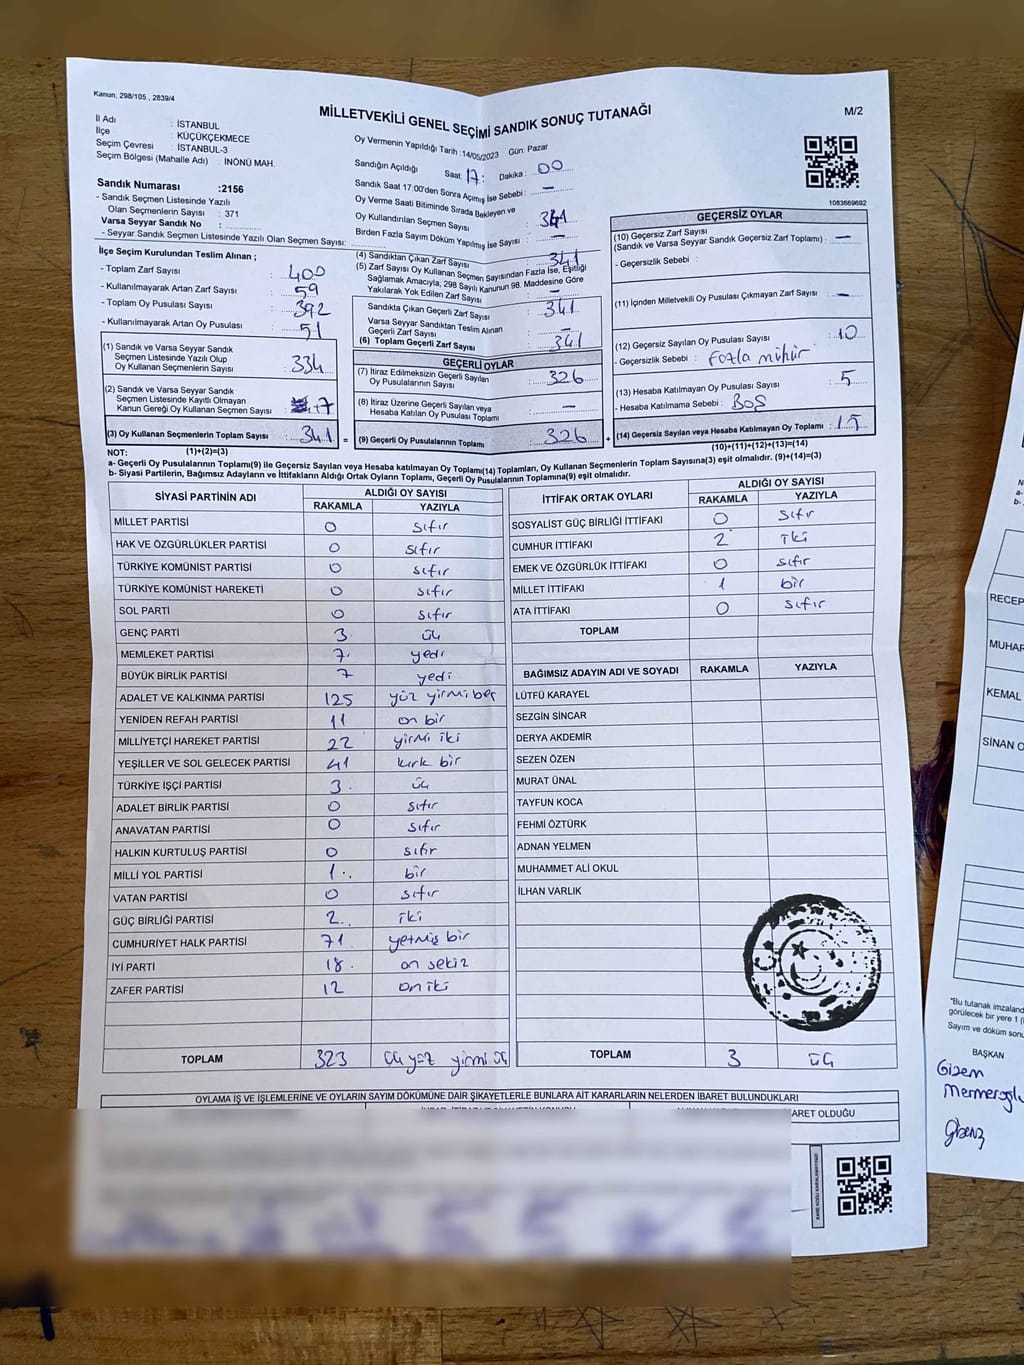 Kanun; 298/105 , 2839/4
MİLLETVEKİLİ GENEL SEÇİMİ SANDIK SONUÇ TUTANAĞI
M/2
İl Adı : İSTANBUL
İlçe : KÜÇÜKÇEKMECE
Seçim Çevresi : İSTANBUL-3
Seçim Bölgesi (Mahalle Adı) : İNÖNÜ MAH.
Sandık Numarası :2156
- Sandık Seçmen Listesinde Yazılı
Olan Seçmenlerin Sayısı : 371
Varsa Seyyar Sandık No :
- Seyyar Sandık Seçmen Listesinde Yazılı Olan Seçmen Sayısı:
Oy Vermenin Yapıldığı Tarih :14/05/2023 Gün: Pazar
Sandığın Açıldığı Saat: 17: Dakika : 00
Sandık Saat 17:00'den Sonra Açımış İse Sebebi : —
Oy Verme Saati Bitiminde Sırada Bekleyen ve
Oy Kullandırılan Seçmen Sayısı : 341
Birden Fazla Sayım Döküm Yapılmış İse Sayısı : —
1083669692
İlçe Seçim Kurulundan Teslim Alınan ;
- Toplam Zarf Sayısı : 400
- Kullanılmayarak Artan Zarf Sayısı : 59
- Toplam Oy Pusulası Sayısı : 392
- Kullanılmayarak Artan Oy Pusulası : 51
(1) Sandık ve Varsa Seyyar Sandık
Seçmen Listesinde Yazılı Olup
Oy Kullanan Seçmenlerin Sayısı : 334
(2) Sandık ve Varsa Seyyar Sandık
Seçmen Listesinde Kayıtlı Olmayan
Kanun Gereği Oy Kullanan Seçmen Sayısı : 7
(3) Oy Kullanan Seçmenlerin Toplam Sayısı : 341 =
(4) Sandıktan Çıkan Zarf Sayısı : 341
(5) Zarf Sayısı Oy Kullanan Seçmen Sayısından Fazla İse, Eşitliği
Sağlamak Amacıyla; 298 Sayılı Kanunun 98. Maddesine Göre
Yakılarak Yok Edilen Zarf Sayısı : —
Sandıkta Çıkan Geçerli Zarf Sayısı : 341
Varsa Seyyar Sandıktan Teslim Alınan
Geçerli Zarf Sayısı : —
(6) Toplam Geçerli Zarf Sayısı : 341
GEÇERLİ OYLAR
(7) İtiraz Edilmeksizin Geçerli Sayılan
Oy Pusulalarının Sayısı : 326
(8) İtiraz Üzerine Geçerli Sayılan veya
Hesaba Katılan Oy Pusulası Toplamı : —
(9) Geçerli Oy Pusulalarının Toplamı : 326 +
GEÇERSİZ OYLAR
(10) Geçersiz Zarf Sayısı
(Sandık ve Varsa Seyyar Sandık Geçersiz Zarf Toplamı) : —
- Geçersizlik Sebebi :
(11) İçinden Milletvekili Oy Pusulası Çıkmayan Zarf Sayısı : —
(12) Geçersiz Sayılan Oy Pusulası Sayısı : 10
- Geçersizlik Sebebi : Fazla mühür
(13) Hesaba Katılmayan Oy Pusulası Sayısı : 5
- Hesaba Katılmama Sebebi : BOŞ
(14) Geçersiz Sayılan veya Hesaba Katılmayan Oy Toplamı : 15
(10)+(11)+(12)+(13)=(14)
NOT: (1)+(2)=(3)
a- Geçerli Oy Pusulalarının Toplamı(9) ile Geçersiz Sayılan veya Hesaba katılmayan Oy Toplamı(14) Toplamları, Oy Kullanan Seçmenlerin Toplam Sayısına(3) eşit olmalıdır. (9)+(14)=(3)
b- Siyasi Partilerin, Bağımsız Adayların ve İttifakların Aldığı Ortak Oyların Toplamı, Geçerli Oy Pusulalarının Toplamına(9) eşit olmalıdır.
SİYASİ PARTİNİN ADI ALDIĞI OY SAYISI
RAKAMLA YAZIYLA
MİLLET PARTİSİ 0 sıfır
HAK VE ÖZGÜRLÜKLER PARTİSİ 0 sıfır
TÜRKİYE KOMÜNİST PARTİSİ 0 sıfır
TÜRKİYE KOMÜNİST HAREKETİ 0 sıfır
SOL PARTİ 0 sıfır
GENÇ PARTİ 3 üç
MEMLEKET PARTİSİ 7 yedi
BÜYÜK BİRLİK PARTİSİ 7 yedi
ADALET VE KALKINMA PARTİSİ 125 yüz yirmi beş
YENİDEN REFAH PARTİSİ 11 on bir
MİLLİYETÇİ HAREKET PARTİSİ 22 yirmi iki
YEŞİLLER VE SOL GELECEK PARTİSİ 41 kırk bir
TÜRKİYE İŞÇİ PARTİSİ 3 üç
ADALET BİRLİK PARTİSİ 0 sıfır
ANAVATAN PARTİSİ 0 sıfır
HALKIN KURTULUŞ PARTİSİ 0 sıfır
MİLLİ YOL PARTİSİ 1 bir
VATAN PARTİSİ 0 sıfır
GÜÇ BİRLİĞİ PARTİSİ 2 iki
CUMHURİYET HALK PARTİSİ 71 yetmiş bir
İYİ PARTİ 18 on sekiz
ZAFER PARTİSİ 12 on iki
TOPLAM 323 üç yüz yirmi üç
İTTİFAK ORTAK OYLARI ALDIĞI OY SAYISI
RAKAMLA YAZIYLA
SOSYALİST GÜÇ BİRLİĞİ İTTİFAKI 0 sıfır
CUMHUR İTTİFAKI 2 iki
EMEK VE ÖZGÜRLÜK İTTİFAKI 0 sıfır
MİLLET İTTİFAKI 1 bir
ATA İTTİFAKI 0 sıfır
TOPLAM
BAĞIMSIZ ADAYIN ADI VE SOYADI RAKAMLA YAZIYLA
LÜTFÜ KARAYEL
SEZGİN SİNCAR
DERYA AKDEMİR
SEZEN ÖZEN
MURAT ÜNAL
TAYFUN KOCA
FEHMİ ÖZTÜRK
ADNAN YELMEN
MUHAMMET ALİ OKUL
İLHAN VARLIK
TOPLAM 3 üç
OYLAMA İŞ VE İŞLEMLERİNE VE OYLARIN SAYIM DÖKÜMÜNE DAİR ŞİKAYETLERLE BUNLARA AİT KARARLARIN NELERDEN İBARET BULUNDUKLARI
ARET OLDUĞU
N
a-
b-
RECEP
MUHAR
KEMAL
SİNAN O
"Bu tutanak imzaland
görülecek bir yere 1 (
Sayım ve döküm sonu
BAŞKAN
Gizem
Mermeroğlu